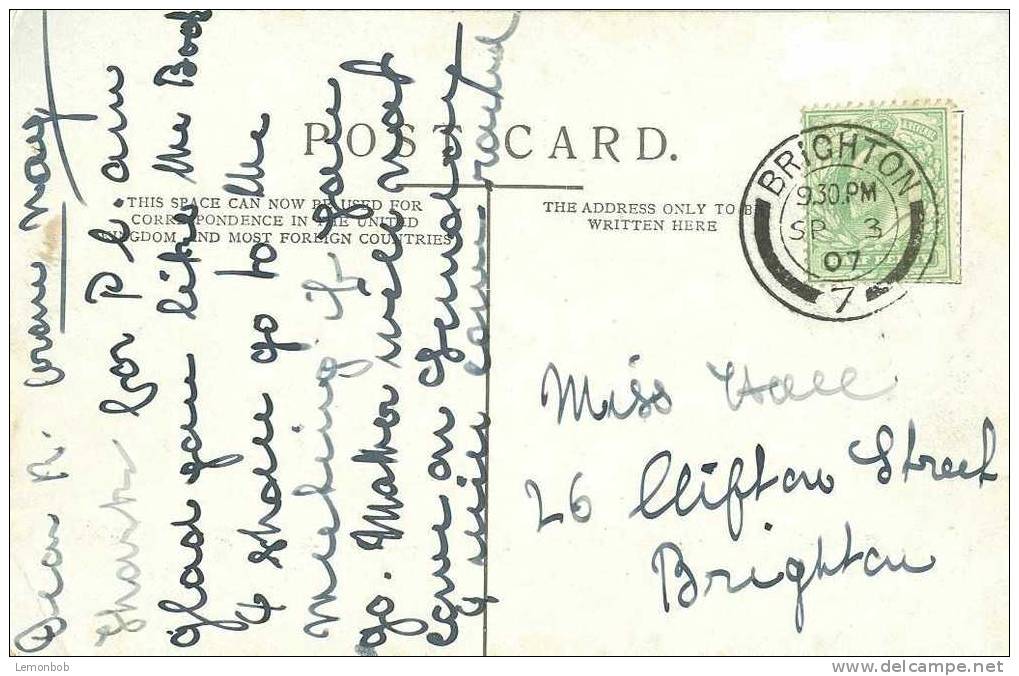 POST CARD.
THIS SPACE CAN NOW BE USED FOR
CORRESPONDENCE IN THE UNITED
KINGDOM AND MOST FOREIGN COUNTRIES
THE ADDRESS ONLY TO BE
WRITTEN HERE
BRIGHTON
9.30 PM
SP 3
07
7
Miss Hall
26 Clifton Street
Brighton
Dear
Thanks for P C am
glad you like the Book
I shall go to the
meeting if you
go. Mother will not
come on Saturday
I will come round
Lemonbob
www.delcampe.net